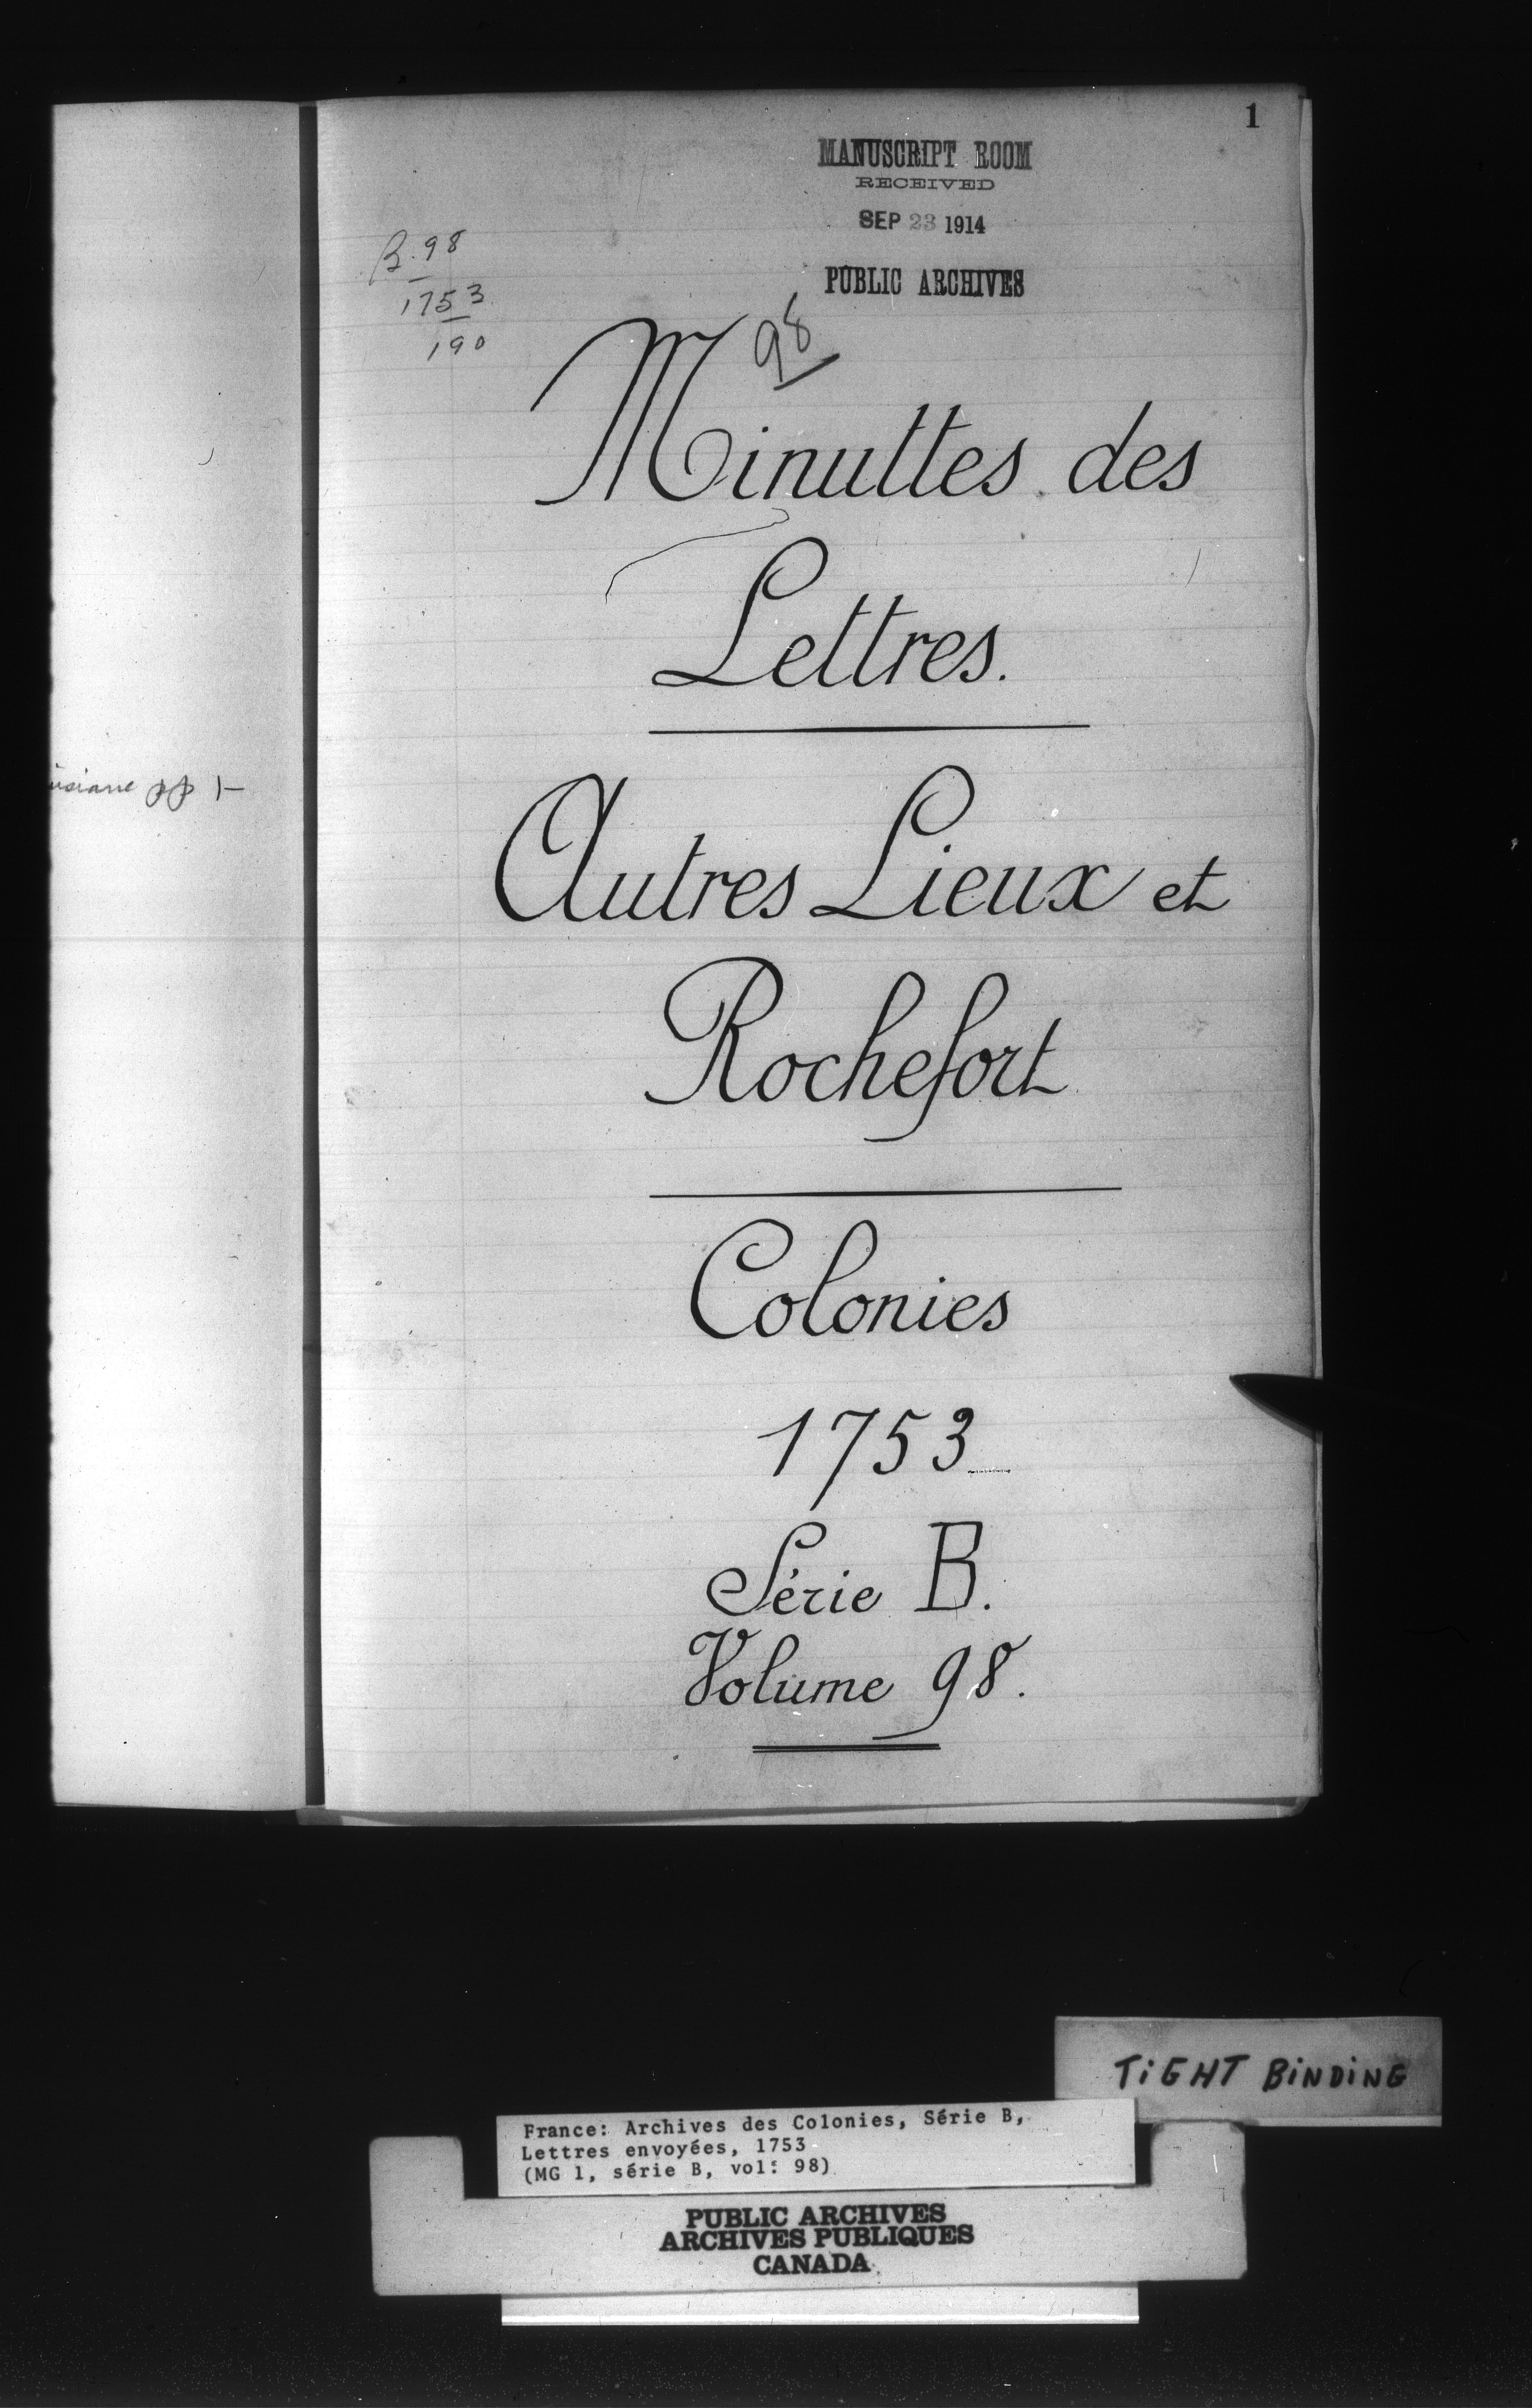 1
MANUSCRIPT ROOM
RECEIVED
SEP 23 1914
PUBLIC ARCHIVES
B. 98
1753
190
98
Minuttes des
Lettres.
pp 1-
Autres Lieux et
Rochefort
Colonies
1753
Série B.
Volume 98.
TiGHT BiNDiNG
France: Archives des Colonies, Série B,
Lettres envoyées, 1753
(MG 1, série B, vol: 98)
PUBLIC ARCHIVES
ARCHIVES PUBLIQUES
CANADA